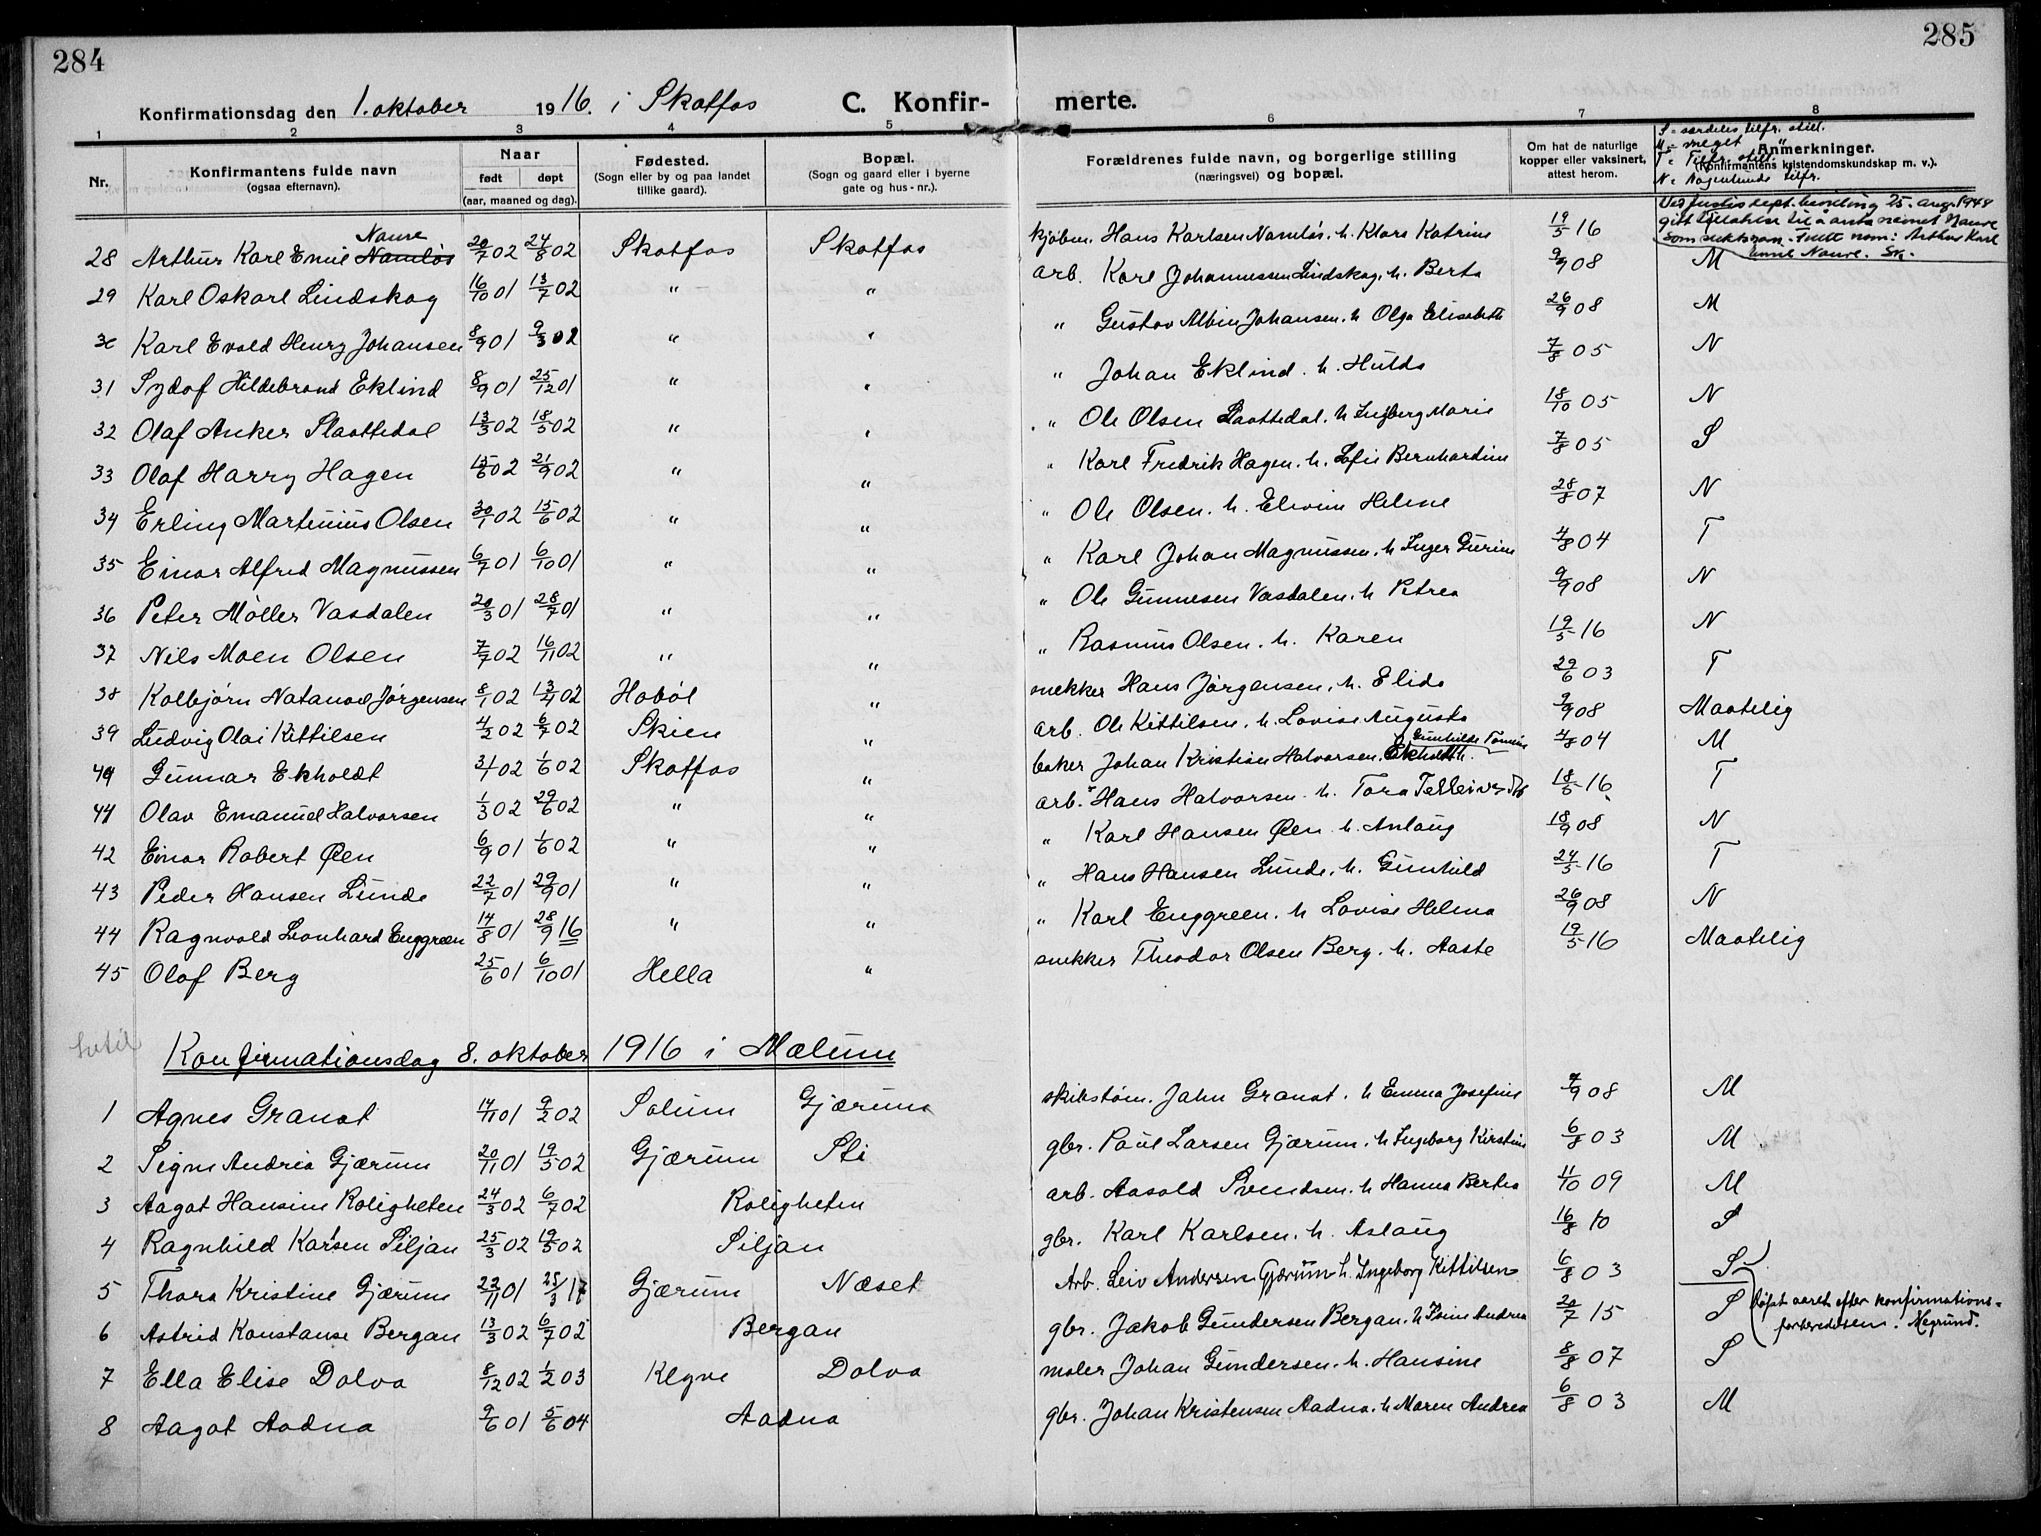 284
285
Konfirmationsdag den 1. oktober 1916. i Skotfos C. Konfir- merte.
1 2 3 4 5 6 7 8
Nr.
Konfirmantens fulde navn
(ogsaa efternavn).
Naar
født døpt
(aar, maaned og dag).
Fødested.
(Sogn eller by og paa landet
tillike gaard).
Bopæl.
(Sogn og gaard eller i byerne
gate og hus-nr.).
Forældrenes fulde navn, og borgerlige stilling
(næringsvei) og bopæl.
Om hat de naturlige
kopper eller vaksinert,
attest herom.
S = særdeles tilfr. still.
M = meget "
Anmerkninger.
T = Tilfr. still.
(Konfirmantens kristendomskundskap m. v.).
N = Nogenlunde tilfr.
Ved justisdept. bevilling 25. aug. 1948
gitt tillatelse til å anta navnet Naure
som slektsnavn. Fullt navn: Arthur Karl
Emil Naure. Sk.
28 Arthur Karl Emil Namløs Naure 20/7 02 24/8 02 Skotfos Skotfos kjøbm. Hans Karlsen Namløs. h. Klara Katrine 19/5 16 M
29 Karl Oskarl Lindskog 16/10 01 13/7 02 " " arb. Karl Johannessen Lindskog, h. Berta 9/9 08 M
30 Karl Evald Henry Johansen 8/9 01 9/3 02 " " " Gustav Albin Johansen. h Olga Elisabeth 26/9 08 N
31 Sydof Hildebrand Eklind 8/9 01 25/12 01 " " " Johan Eklind. h. Hulda 7/8 05 N
32 Olaf Anker Slaattedal 13/3 02 18/5 02 " " " Ole Olsen Slaattedal. h Ingberg Marie 18/10 05 S
33 Olaf Harry Hagen 15/6 02 21/9 02 " " " Karl Fredrik Hagen. h. Sofie Bernhardine 7/8 05 N
34 Erling Martinius Olsen 30/1 02 15/6 02 " " " Ole Olsen. h. Elevine Helene 28/8 07 T
35 Einar Alfred Magnussen 6/7 01 6/10 01 " " " Karl Johan Magnussen. h Inger Gurine 4/8 04 N
36 Peter Møller Vasdalen 20/3 01 28/7 01 " " " Ole Gunnesen Vasdalen. h Petrea 9/9 08 N
37 Nils Moen Olsen 7/7 02 16/11 02 " " " Rasmus Olsen. h. Karen 19/5 16 T
38 Kolbjørn Natanael Jørgensen 8/1 02 13/4 02 Hobøl " snekker Hans Jørgensen, h. Elida 29/6 03 Maatelig
39 Ludvig Olai Kittilsen 4/2 02 6/7 02 Skien " arb. Ole Kittilsen, h. Lovise Augusta 9/9 08 M
40 Gunnar Ekholdt 3/1 02 1/6 02 Skotfos " baker Johan Kristian Halvorsen Ekholdt h. Gunhilde 4/8 04 T
41 Olav Emanuel Halvorsen 1/3 02 29/6 02 " " arb. Hans Halvorsen. h. Tora 18/5 16 N
42 Einar Robert Øen 6/9 01 1/6 02 " " " Karl Hansen Øen. h. Anlaug 18/9 08 T
43 Peder Hansen Lunde 22/7 01 29/9 01 " " " Hans Hansen Lunde. h. Gunhild 24/5 16 N
44 Ragnvald Leonhard Enggreen 14/8 01 28/9 16 " " " Karl Enggreen. h Lovise Helena 26/9 08 Maatelig
45 Olaf Berg 25/6 01 6/10 01 Hella " snekker Theodor Olsen Berg. h. Aaste 19/5 16
Konfirmationsdag 8. oktober 1916 i Mælum
1 Agnes Granat 14/11 01 9/2 02 Solum Gjærum skibstøm. John Granat. h Emma Josefine 7/9 08 M
2 Signe Andrea Gjærum 20/11 01 19/5 02 Gjærum Sti gbr. Paul Larsen Gjærum. h Ingeborg Kirstine 6/8 03 M
3 Aagot Hansine Roligheten 24/3 02 6/7 02 Roligheten arb. Aasold Svendsen. h Hanna Bertea 11/10 09 M
4 Ragnhild Karlsen Siljan 25/3 02 19/5 02 Siljan gbr. Karl Karlsen. h. Aslaug 16/8 10 S
5 Thora Kristine Gjærum 22/11 01 25/3 17 Gjærum Næset Arb. Leiv Andersen Gjærum h. Ingeborg Kittilsen 6/8 03 S
6 Astrid Konstanse Bergan 13/3 02 6/7 02 Bergan gbr. Jakob Gundersen Bergan. h Andrea 20/7 15 S
døpt aaret efter konfirmations=
forberedelsen.
7 Ella Elise Dolva 8/12 02 1/2 03 Klyve Dolva maler Johan Gundersen. h. Hansine 8/8 07 S
8 Aagot Aadna 9/6 01 5/6 04 Aadna gbr. Johan Kristensen Aadna. h Maren Andrea 6/8 03 M